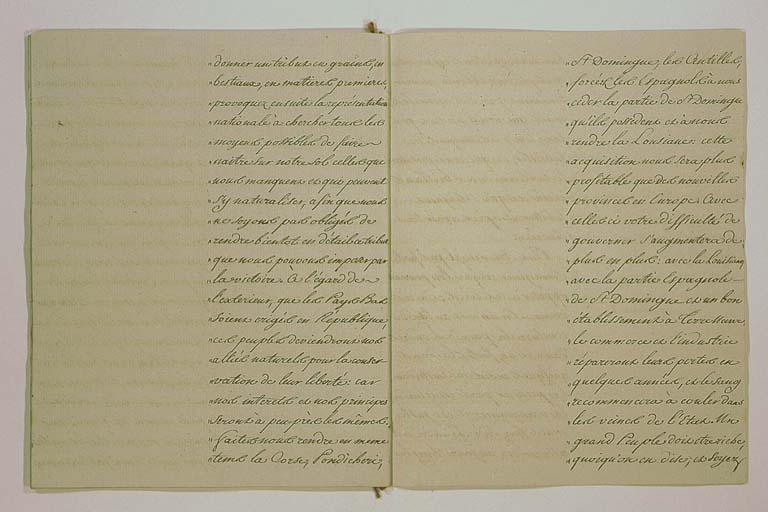 "donner un tribut en grains, en
"bestiaux, en matieres premieres,
"provoquez ensuite la représentation
"nationale à chercher tous les
"moyens possibles de faire
"naitre sur notre sol celles que
"nous manquens et qui peuvent
"s'y naturaliser, afin que nous
"ne soyons pas obligés de
"rendre bientot en détail ce tribut
"que nous pouvons imposer par
"la victoire. à l'égard de
"l'exterieur, que les Pays Bas
"soient erigés en République,
"ces peuples deviendront nos
"alliés naturels pour la conser-
"vation de leur liberté: car
"nos interets et nos principes
"seront à peu près les mêmes.
"faites nous rendre en meme
"tems la Corse, Pondicheri,
"St Domingue, les Antilles,
"forcez les Espagnols à nous
"céder la partie de St Domingue
"qu'ils possedent et à nous
"rendre la Lousiane: cette
"acquisition nous sera plus
"profitable que des nouvelles
"provinces en Europe. avec
"celles ci votre difficulté de
"gouverner s'augmentera de
"plus en plus: avec la Louisiane,
"avec la partie Espagnole
"de St Domingue et un bon
"établissement à Terre Neuve,
"le commerce et l'industrie
"répareront leurs pertes en
"quelques années, et le sang
"recommencera à couler dans
"les veines de l'Etat. Un
"grand Peuple doit etre riche,
"quoiqu'on en dise, et soyez